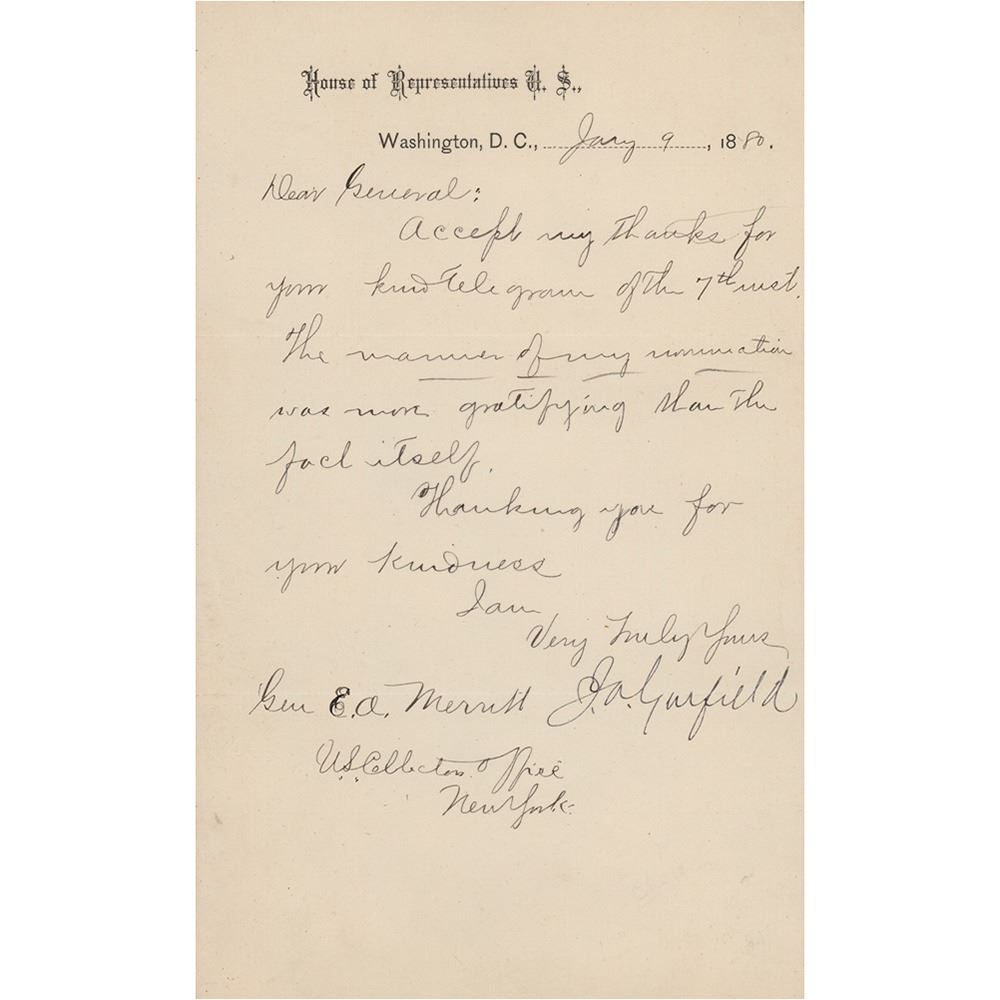 House of Representatives U. S.,
Washington, D. C., Jany 9, 1880.
Dear General:
Accept my thanks for
your kind telegram of the 7th inst.
The manner of my nomination
was more gratifying than the
fact itself.
Thanking you for
your kindness
I am
Very Truly Yours
Gen E.A. Merritt J.A. Garfield
U.S. Collectors Office
New York.